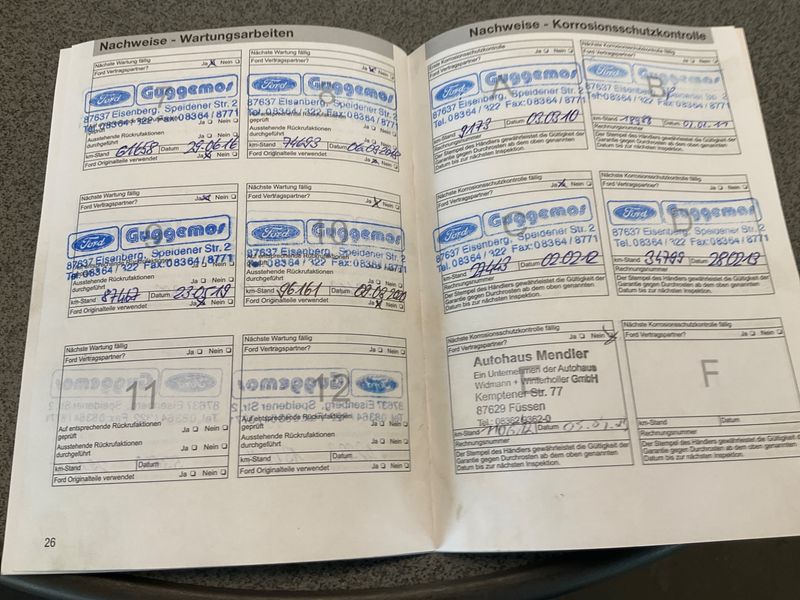 Nachweise - Wartungsarbeiten
Nächste Wartung fällig
Ford Vertragspartner? Ja Nein
Ford Guggemos
87637 Eisenberg, Speidener Str. 2
Tel. 08364 / 322 Fax: 08364 / 8771
Ausstehende Rückrufaktionen
durchgeführt Ja Nein
km-Stand 61658 Datum 29.06.16
Ford Originalteile verwendet Ja Nein
Nächste Wartung fällig
Ford Vertragspartner? Ja Nein
8
Ford Guggemos
87637 Eisenberg, Speidener Str. 2
Tel. 08364 / 322 Fax: 08364 / 8771
geprüft Ja Nein
Ausstehende Rückrufaktionen
durchgeführt Ja Nein
km-Stand 74693 Datum
Ford Originalteile verwendet Ja Nein
Nächste Wartung fällig
Ford Vertragspartner? Ja Nein
9
Ford Guggemos
87637 Eisenberg, Speidener Str. 2
Tel. 08364 / 322 Fax: 08364 / 8771
Ausstehende Rückrufaktionen
durchgeführt Ja Nein
km-Stand 87467 Datum
Ford Originalteile verwendet Ja Nein
Nächste Wartung fällig
Ford Vertragspartner? Ja Nein
10
Ford Guggemos
87637 Eisenberg, Speidener Str. 2
Tel. 08364 / 322 Fax: 08364 / 8771
Ausstehende Rückrufaktionen
durchgeführt Ja Nein
km-Stand 96161 Datum
Ford Originalteile verwendet Ja Nein
Nächste Wartung fällig
Ford Vertragspartner? Ja Nein
11
Auf entsprechende Rückrufaktionen
geprüft Ja Nein
Ausstehende Rückrufaktionen
durchgeführt Ja Nein
km-Stand Datum
Ford Originalteile verwendet Ja Nein
Nächste Wartung fällig
Ford Vertragspartner? Ja Nein
12
Auf entsprechende Rückrufaktionen
geprüft Ja Nein
Ausstehende Rückrufaktionen
durchgeführt Ja Nein
km-Stand Datum
Ford Originalteile verwendet Ja Nein
26
Nachweise - Korrosionsschutzkontrolle
Erste Korrosionsschutzkontrolle
Ford Vertragspartner? Ja Nein
A
Ford Guggemos
87637 Eisenberg, Speidener Str. 2
Tel. 08364 / 322 Fax: 08364 / 8771
km-Stand 9173 Datum 03.03.10
Rechnungsnummer
Der Stempel des Händlers gewährleistet die Gültigkeit der
Garantie gegen Durchrosten ab dem oben genannten
Datum bis zur nächsten Inspektion.
Nächste Korrosionsschutzkontrolle fällig
Ford Vertragspartner? Ja Nein
B
Ford Guggemos
87637 Eisenberg, Speidener Str. 2
Tel. 08364 / 322 Fax: 08364 / 8771
km-Stand Datum
Rechnungsnummer
Der Stempel des Händlers gewährleistet die Gültigkeit der
Garantie gegen Durchrosten ab dem oben genannten
Datum bis zur nächsten Inspektion.
Nächste Korrosionsschutzkontrolle fällig
Ford Vertragspartner? Ja Nein
C
Ford Guggemos
87637 Eisenberg, Speidener Str. 2
Tel. 08364 / 322 Fax: 08364 / 8771
km-Stand 27443 Datum 02.02.12
Rechnungsnummer
Der Stempel des Händlers gewährleistet die Gültigkeit der
Garantie gegen Durchrosten ab dem oben genannten
Datum bis zur nächsten Inspektion.
Nächste Korrosionsschutzkontrolle fällig
Ford Vertragspartner? Ja Nein
D
Ford Guggemos
87637 Eisenberg, Speidener Str. 2
Tel. 08364 / 322 Fax: 08364 / 8771
km-Stand Datum 28.02.13
Rechnungsnummer
Der Stempel des Händlers gewährleistet die Gültigkeit der
Garantie gegen Durchrosten ab dem oben genannten
Datum bis zur nächsten Inspektion.
Nächste Korrosionsschutzkontrolle fällig
Ford Vertragspartner? Ja Nein
Autohaus Mendler
Ein Unternehmen der Autohaus
Widmann + Winterholler GmbH
Kemptener Str. 77
87629 Füssen
km-Stand Datum
Rechnungsnummer
Der Stempel des Händlers gewährleistet die Gültigkeit der
Garantie gegen Durchrosten ab dem oben genannten
Datum bis zur nächsten Inspektion.
Nächste Korrosionsschutzkontrolle fällig
Ford Vertragspartner? Ja Nein
F
km-Stand Datum
Rechnungsnummer
Der Stempel des Händlers gewährleistet die Gültigkeit der
Garantie gegen Durchrosten ab dem oben genannten
Datum bis zur nächsten Inspektion.